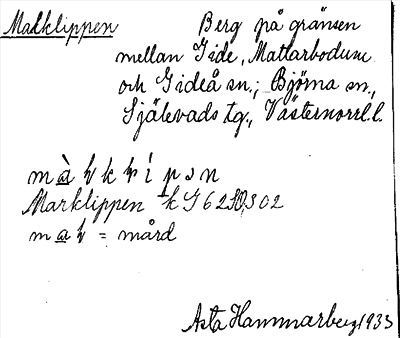 Malklippen Berg på gränsen
mellan Gide, Mattarbodum
och Gideå sn.; Björna sn.,
Själevads tg., Västernorrl.l.
Marklippen k
= mård
Asta Hammarberg 1933